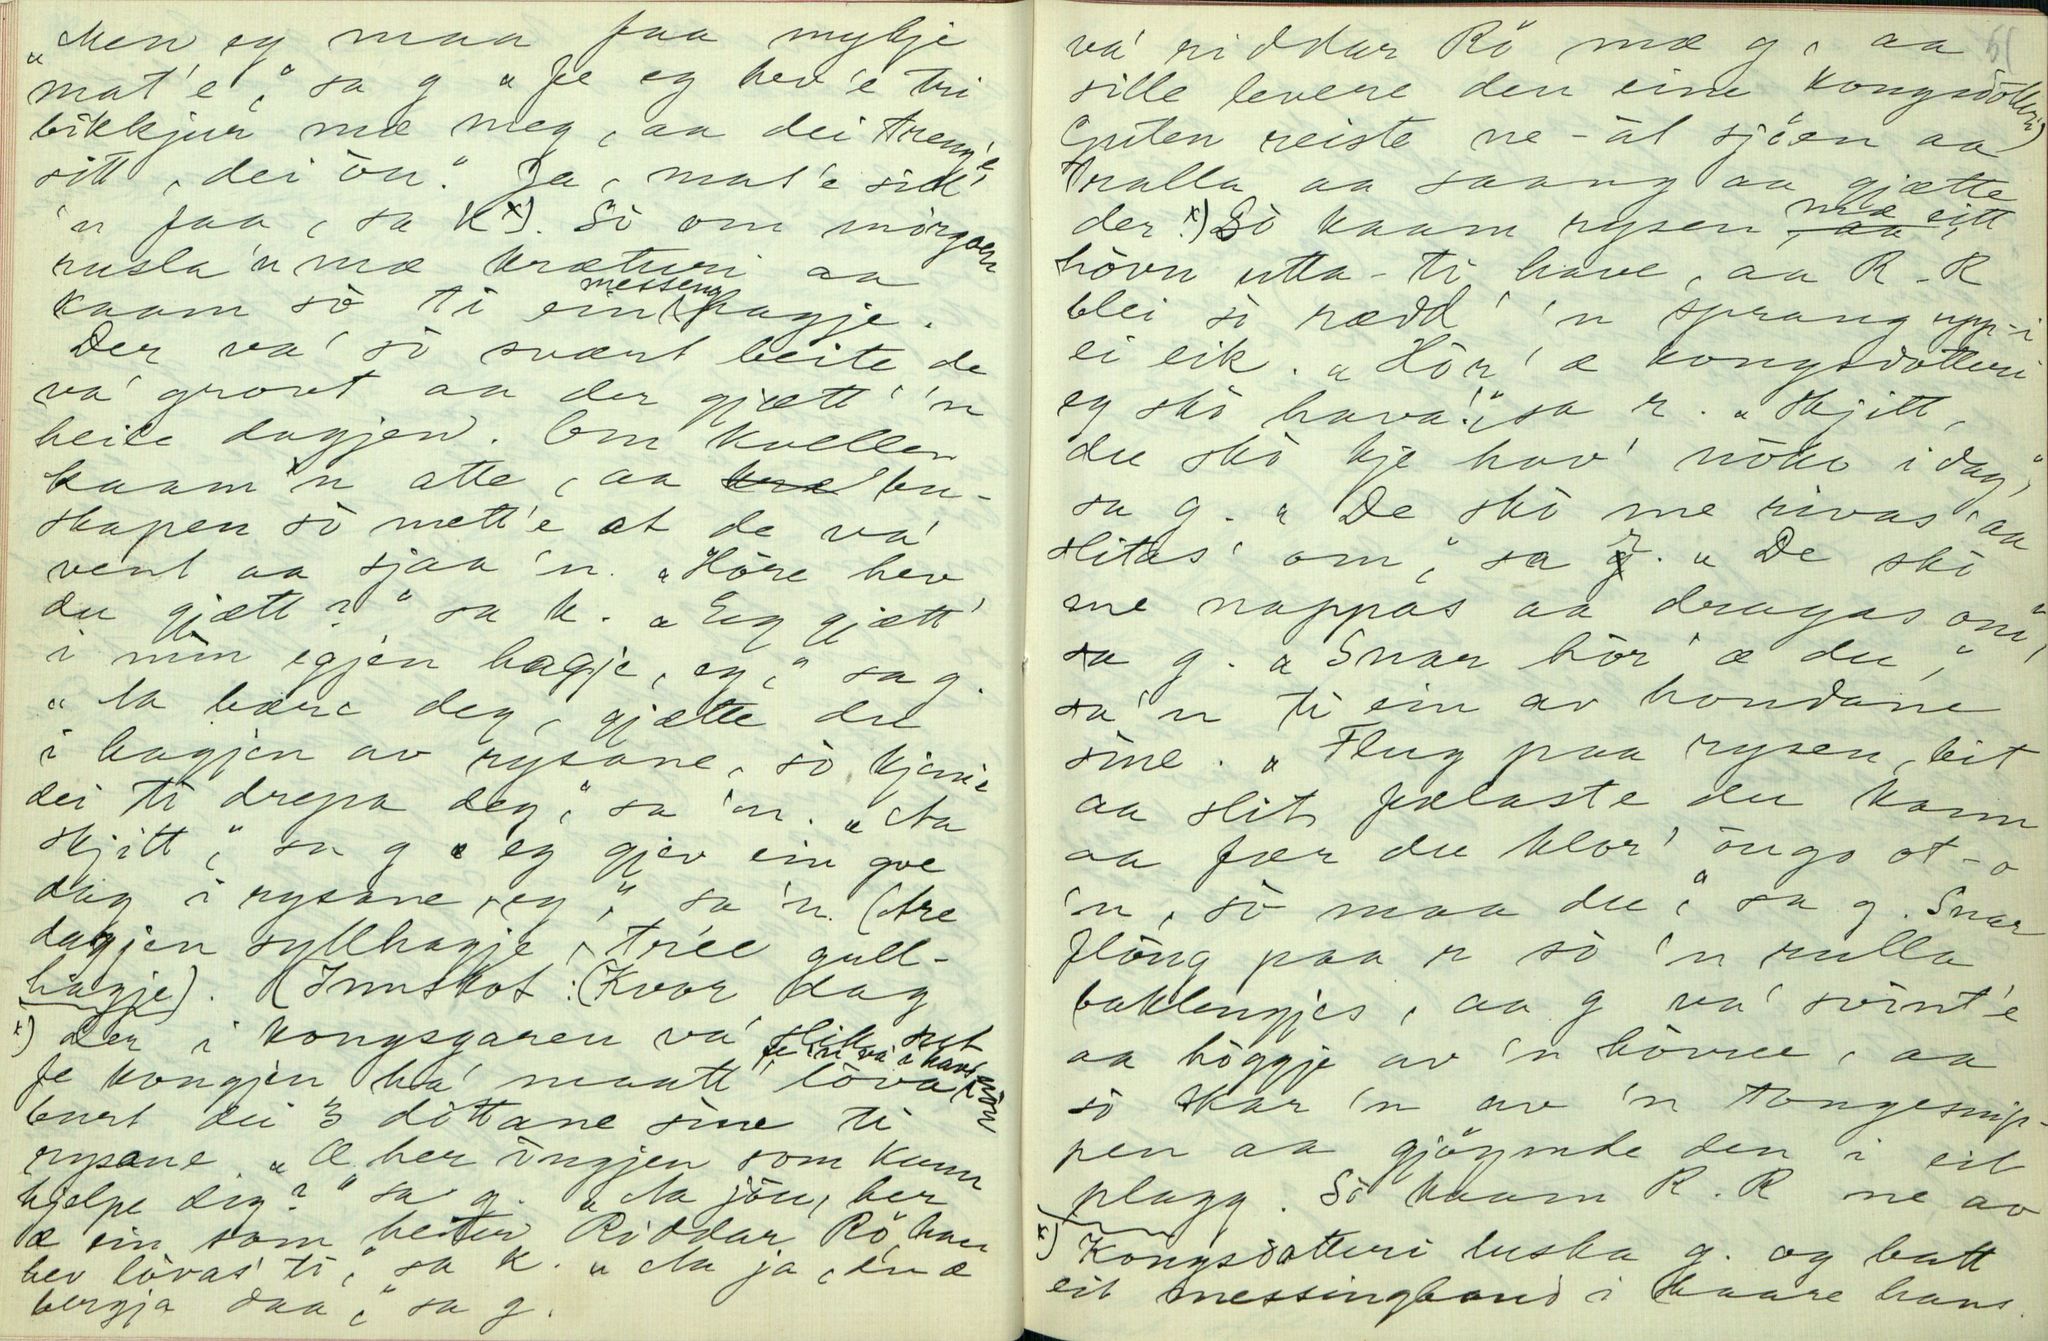 „Men eg maa faa mykje
mat'e," sa g „fe eg hev'e tri
bikkjur mæ meg, aa dei treng'e
sitt, dei òu." Ja, mat'e sill'
'n faa, sa k x). Sò om mòrgoen
rusla'n mæ kræturi aa
kaam sò ti ein messing hagje.
Der va' sò svært beite de
va' grovt aa der gjætt''n
heile dagjen. Om kvellen
kaam'n atte, aa bu-
skapen sò mett'e at de va'
vent aa sjaa'n. „Hòre hev
du gjætt?" sa k. „Eg gjætt'
i min egjen hagje, eg," sa g.
„Na bære deg, gjætte du
i hagjen av rysane, sò kjem'e
dei ti drepa deg," sa'n. „Aa
skjitt," sa g „eg gjev ein goe
dag i rysane, eg," sa'n. (Are
dagjen syllhagje, triee gull-
hagje). (Innskot: (Kvar dag
x) Der i kongsgaren va' slik sut
fe 'n va i havsnød
fe kongjen ha' maatt' lòva
burt dei 3 dòttane sine ti
rysane. „Æ her ingjen som kunn
hjelpe dig?" sa g. „Aa jòu, her
æ ein som heiter Riddar Rö han
hev lòvas' ti," sa k. „Aa ja, en æ
bergja daa," sa g.
61
va' riddar Rö mæ g, aa
sille levere den eine kongsdòtteri)
Guten reiste ne-åt sjöen aa
tralla aa saang aa gjætte
der x) Sò kaam rysen mæ sitt
hòvu utta-ti have, aa R-R
blei sò rædd' 'n sprang upp-i
ei eik. „Hòr' æ kongsdòtteri
eg skò hava'," sa r. „Skjitt,
du skò kje hav' nòko idag,"
sa g. „De skò me rivas' aa
slitas' om," sa r. „De skò
me nappas aa dragas om,"
sa g. „Snar hòr' æ du,"
sa'n ti ein av hondane
sine. „Flug paa rysen, bit
aa slit fælaste du kann
aa fær du klor' òugo ot-o
'n, sò maa du," sa g. Snar
flòug paa r sò 'n rulla
baklengjes, aa g va' svint'e
aa höggje av 'n hòvue, aa
sò skar 'n av 'n tongesnip-
pen aa gjöymde den i eit
plagg. Sò kaam R.R ne av
x) Kongsdotteri luska g. og batt
eit messingband i haare hans.